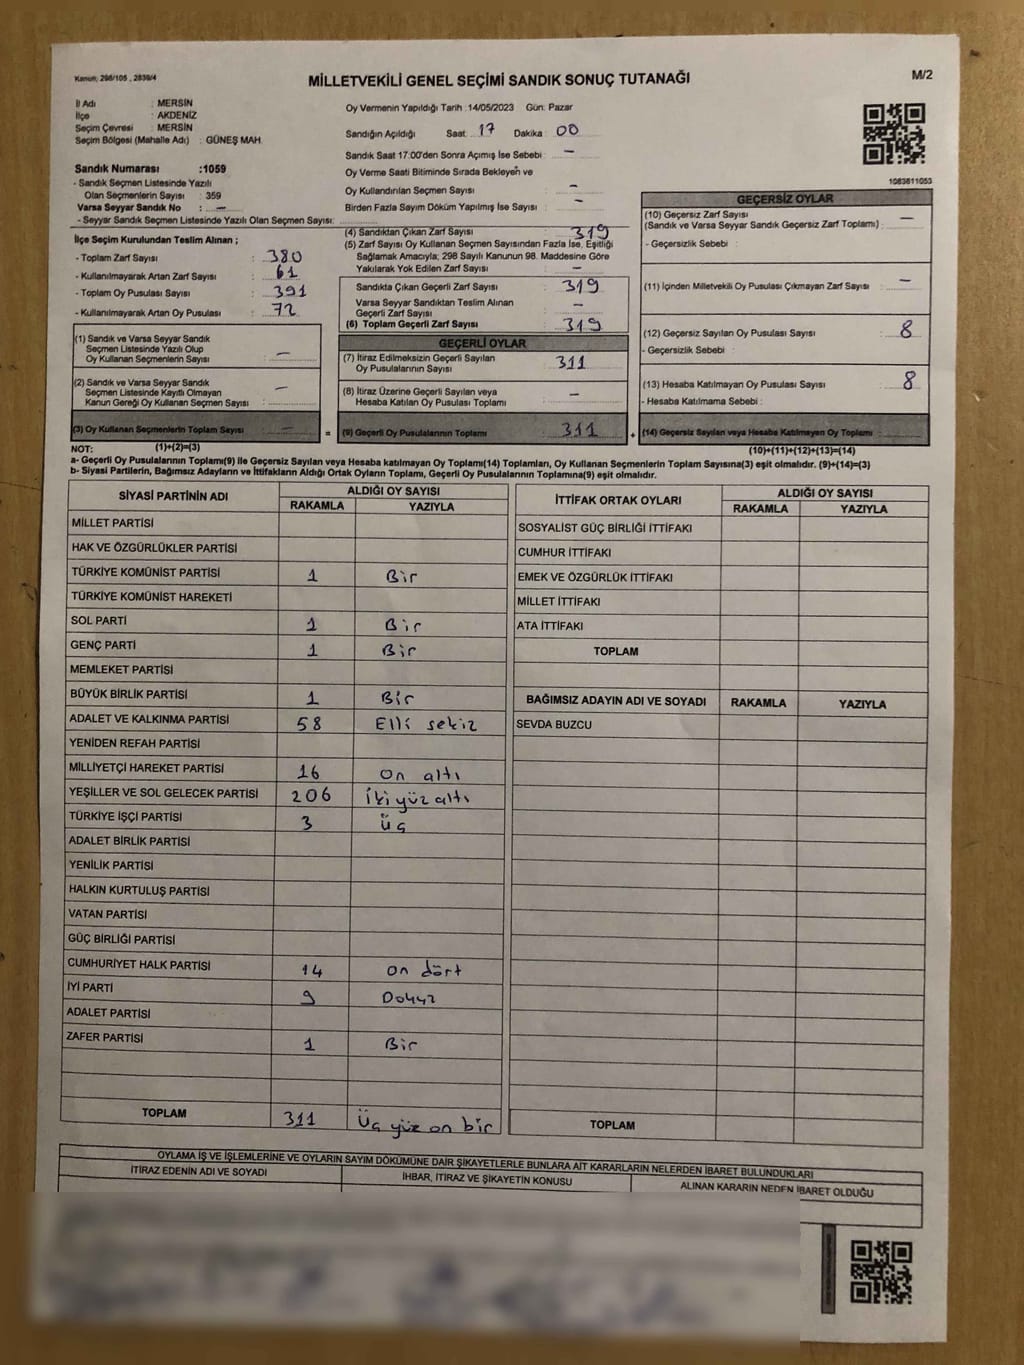 Kanun; 298/105 , 2839/4
MİLLETVEKİLİ GENEL SEÇİMİ SANDIK SONUÇ TUTANAĞI
M/2
İl Adı : MERSİN
İlçe : AKDENİZ
Seçim Çevresi : MERSİN
Seçim Bölgesi (Mahalle Adı) : GÜNEŞ MAH.
Sandık Numarası :1059
- Sandık Seçmen Listesinde Yazılı
Olan Seçmenlerin Sayısı : 359
Varsa Seyyar Sandık No : —
- Seyyar Sandık Seçmen Listesinde Yazılı Olan Seçmen Sayısı:
Oy Vermenin Yapıldığı Tarih :14/05/2023 Gün: Pazar
Sandığın Açıldığı Saat: 17 Dakika : 00
Sandık Saat 17:00'den Sonra Açımış İse Sebebi : —
Oy Verme Saati Bitiminde Sırada Bekleyen ve
Oy Kullandırılan Seçmen Sayısı : —
Birden Fazla Sayım Döküm Yapılmış İse Sayısı : —
1083611053
İlçe Seçim Kurulundan Teslim Alınan ;
- Toplam Zarf Sayısı : 380
- Kullanılmayarak Artan Zarf Sayısı : 61
- Toplam Oy Pusulası Sayısı : 391
- Kullanılmayarak Artan Oy Pusulası : 72
(1) Sandık ve Varsa Seyyar Sandık
Seçmen Listesinde Yazılı Olup
Oy Kullanan Seçmenlerin Sayısı : —
(2) Sandık ve Varsa Seyyar Sandık
Seçmen Listesinde Kayıtlı Olmayan
Kanun Gereği Oy Kullanan Seçmen Sayısı : —
(3) Oy Kullanan Seçmenlerin Toplam Sayısı : —
(4) Sandıktan Çıkan Zarf Sayısı : 319
(5) Zarf Sayısı Oy Kullanan Seçmen Sayısından Fazla İse, Eşitliği
Sağlamak Amacıyla; 298 Sayılı Kanunun 98. Maddesine Göre
Yakılarak Yok Edilen Zarf Sayısı : —
Sandıkta Çıkan Geçerli Zarf Sayısı : 319
Varsa Seyyar Sandıktan Teslim Alınan
Geçerli Zarf Sayısı : —
(6) Toplam Geçerli Zarf Sayısı : 319
GEÇERLİ OYLAR
(7) İtiraz Edilmeksizin Geçerli Sayılan
Oy Pusulalarının Sayısı : 311
(8) İtiraz Üzerine Geçerli Sayılan veya
Hesaba Katılan Oy Pusulası Toplamı : —
= (9) Geçerli Oy Pusulalarının Toplamı : 311
GEÇERSİZ OYLAR
(10) Geçersiz Zarf Sayısı
(Sandık ve Varsa Seyyar Sandık Geçersiz Zarf Toplamı) : —
- Geçersizlik Sebebi :
(11) İçinden Milletvekili Oy Pusulası Çıkmayan Zarf Sayısı : —
(12) Geçersiz Sayılan Oy Pusulası Sayısı : 8
- Geçersizlik Sebebi :
(13) Hesaba Katılmayan Oy Pusulası Sayısı : 8
- Hesaba Katılmama Sebebi :
+ (14) Geçersiz Sayılan veya Hesaba Katılmayan Oy Toplamı :
NOT: (1)+(2)=(3)
(10)+(11)+(12)+(13)=(14)
a- Geçerli Oy Pusulalarının Toplamı(9) ile Geçersiz Sayılan veya Hesaba katılmayan Oy Toplamı(14) Toplamları, Oy Kullanan Seçmenlerin Toplam Sayısına(3) eşit olmalıdır. (9)+(14)=(3)
b- Siyasi Partilerin, Bağımsız Adayların ve İttifakların Aldığı Ortak Oyların Toplamı, Geçerli Oy Pusulalarının Toplamına(9) eşit olmalıdır.
SİYASİ PARTİNİN ADI ALDIĞI OY SAYISI
RAKAMLA YAZIYLA
MİLLET PARTİSİ
HAK VE ÖZGÜRLÜKLER PARTİSİ
TÜRKİYE KOMÜNİST PARTİSİ 1 Bir
TÜRKİYE KOMÜNİST HAREKETİ
SOL PARTİ 1 Bir
GENÇ PARTİ 1 Bir
MEMLEKET PARTİSİ
BÜYÜK BİRLİK PARTİSİ 1 Bir
ADALET VE KALKINMA PARTİSİ 58 Elli sekiz
YENİDEN REFAH PARTİSİ
MİLLİYETÇİ HAREKET PARTİSİ 16 on altı
YEŞİLLER VE SOL GELECEK PARTİSİ 206 İki yüz altı
TÜRKİYE İŞÇİ PARTİSİ 3 Üç
ADALET BİRLİK PARTİSİ
YENİLİK PARTİSİ
HALKIN KURTULUŞ PARTİSİ
VATAN PARTİSİ
GÜÇ BİRLİĞİ PARTİSİ
CUMHURİYET HALK PARTİSİ 14 on dört
İYİ PARTİ 9 Dokuz
ADALET PARTİSİ
ZAFER PARTİSİ 1 Bir
TOPLAM 311 Üç yüz on bir
İTTİFAK ORTAK OYLARI ALDIĞI OY SAYISI
RAKAMLA YAZIYLA
SOSYALİST GÜÇ BİRLİĞİ İTTİFAKI
CUMHUR İTTİFAKI
EMEK VE ÖZGÜRLÜK İTTİFAKI
MİLLET İTTİFAKI
ATA İTTİFAKI
TOPLAM
BAĞIMSIZ ADAYIN ADI VE SOYADI RAKAMLA YAZIYLA
SEVDA BUZCU
TOPLAM
OYLAMA İŞ VE İŞLEMLERİNE VE OYLARIN SAYIM DÖKÜMÜNE DAİR ŞİKAYETLERLE BUNLARA AİT KARARLARIN NELERDEN İBARET BULUNDUKLARI
İTİRAZ EDENİN ADI VE SOYADI İHBAR, İTİRAZ VE ŞİKAYETİN KONUSU ALINAN KARARIN NEDEN İBARET OLDUĞU